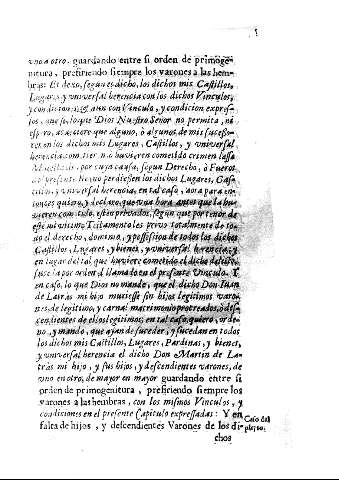 vno a otro, guardando entre si orden de primoge-
nitura, prefiriendo siempre los varones a las hem-
bras: Et dexo, segun es dicho, los dichos mis Castillos,
Lugares, y vniversal herencia con los dichos Vinculos,
y condiciones, aun con Vinculo, y condicion expres-
so, que lo que Dios Nuestro Señor no permita, ni
espero, acaeciere que alguno, ò algunos de mis sucesso-
res en los dichos mis Lugares, Castillos, y vniversal
herencia huvieren cometido crimen læssæ
Maiestatis, por cuya causa, segun Derecho, ò Fueros
presente Reyno perdiessen los dichos Lugares, Cas-
tillos, y vniversal herencia, en tal caso, aora para en-
tonces quiero, y declaro, que vna hora antes que la hu-
vieren cometido, estèn privados, segun que por tenor de
este mi vltimo Testamento les privo totalmente de to-
do el derecho, dominio, y possession de todos los dichos
Castillos, Lugares, y bienes, y vniversal herencia, y
en lugar del tal que huviere cometido el dicho delito,
suceda por orden el llamado en el presente Vinculo. Y
en caso, lo que Dios no mande, que el dicho Don Iuan
de Latràs mi hijo muriesse sin hijos legitimos varo-
nes de legitimo, y carnal matrimonio procreados, ò des-
cendientes de ellos legitimos, en tal caso, quiero, orde-
no, y mando, que ayan de suceder, y sucedan en todos
los dichos mis Castillos, Lugares, Pardinas, y bienes,
y vniversal herencia el dicho Don Martin de La-
tràs mi hijo, y sus hijos, y descendientes varones, de
vno en otro, de mayor en mayor guardando entre si
orden de primogenitura, prefiriendo siempre los
varones a las hembras, con los mismos Vinculos, y
condiciones en el presente Capitulo expressadas: Y en
falta de hijos, y descendientes Varones de los di-
chos
Caso del
pleyto.